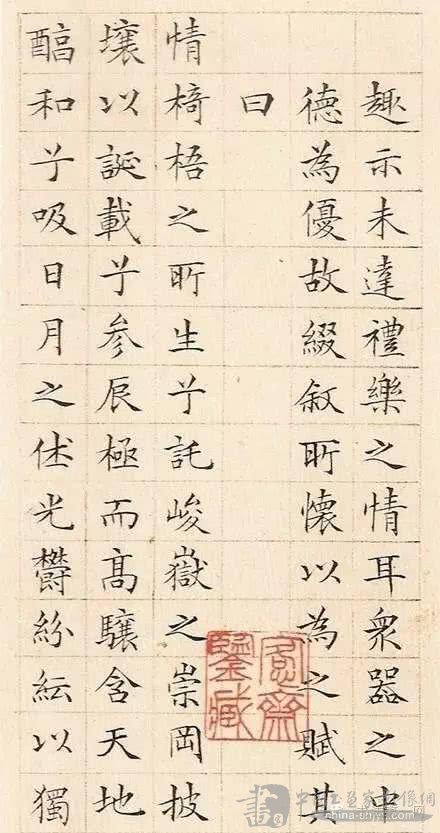 趣示未達禮樂之情耳衆器之中
德為優故綴叙所懷以為之賦其
曰
情椅梧之所生兮託峻嶽之崇岡披
壤以誕載兮参辰極而高驤含天地
醕和兮吸日月之休光鬱紛紜以獨
愙齋鑒藏